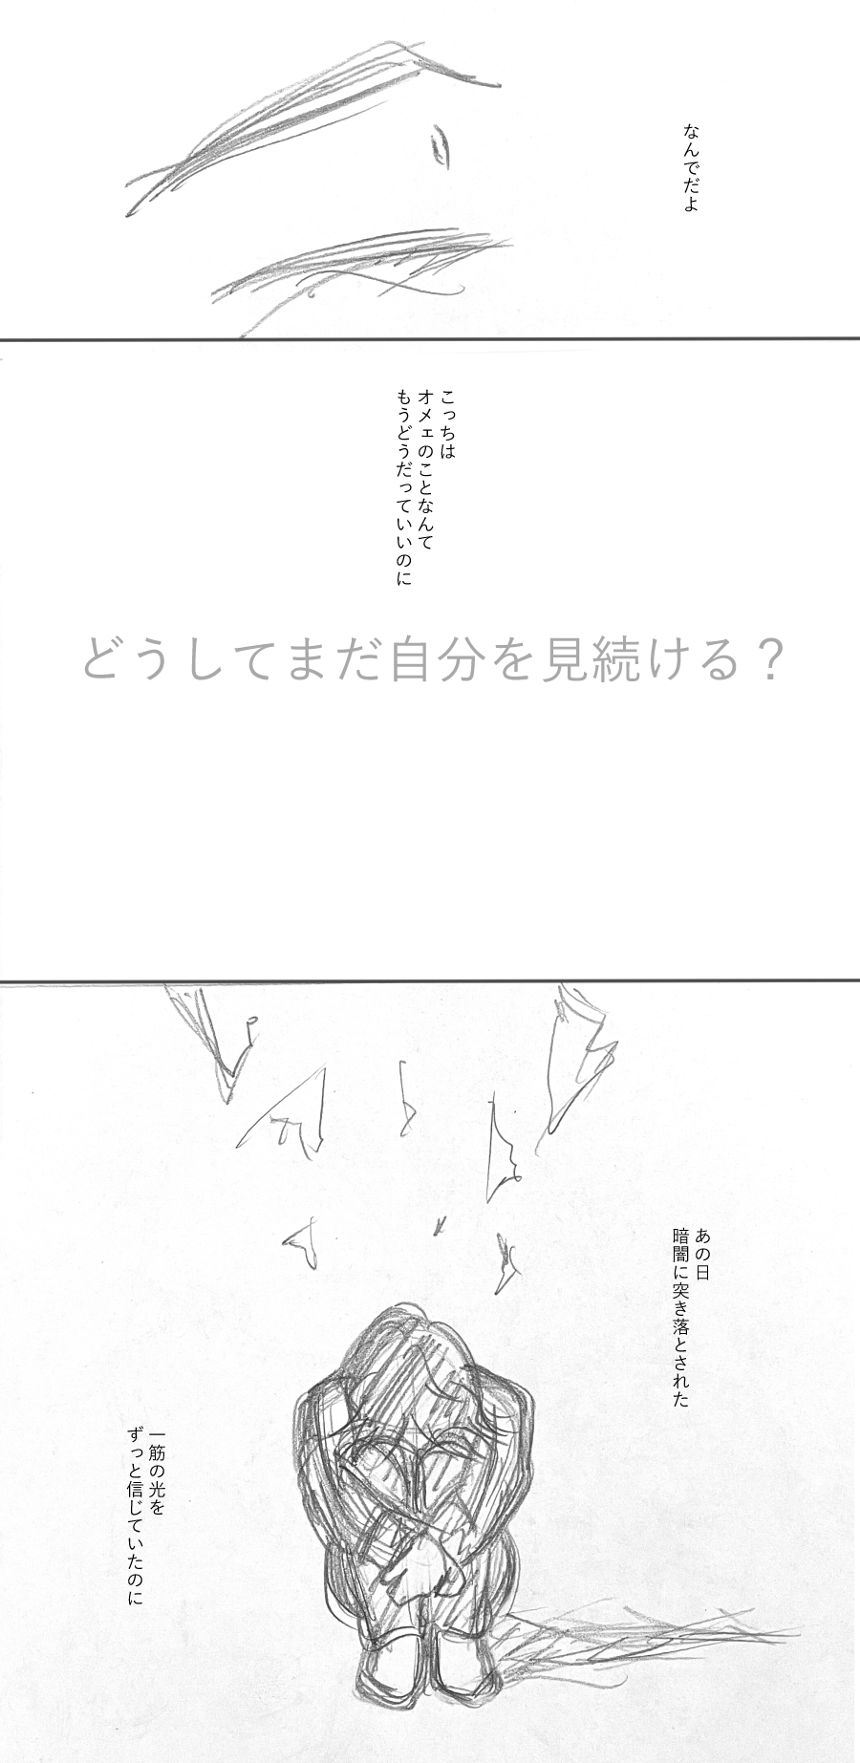 なんでだよ
こっちは
オメェのことなんて
もうどうだっていいのに
どうしてまだ自分を見続ける？
あの日
暗闇に突き落とされた
一筋の光を
ずっと信じていたのに